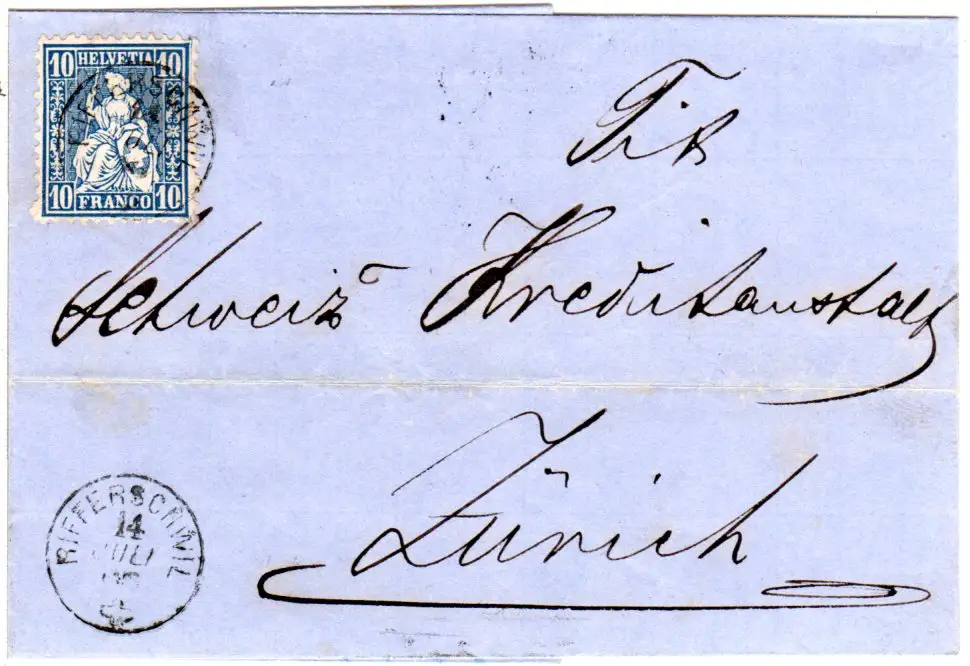 10 HELVETIA 10
10 FRANCO 10
Tit
Schweiz Kreditanstalt
Zürich
RIFFERSCHWIL
14
JULI